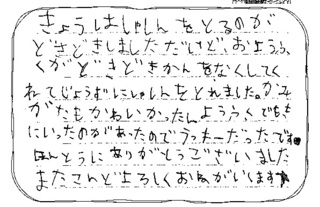 きょうはしゃしんをとるのが
どきどきしましただけど、おようふ
くがどきどきかんをなくしてく
れてじょうずにしゃしんをとれました。かみ
がたもかわいかったしようふくでもき
にいったのがあったのでラッキーだったです
ほんとうにありがとうございました
またこんどよろしくおねがいします